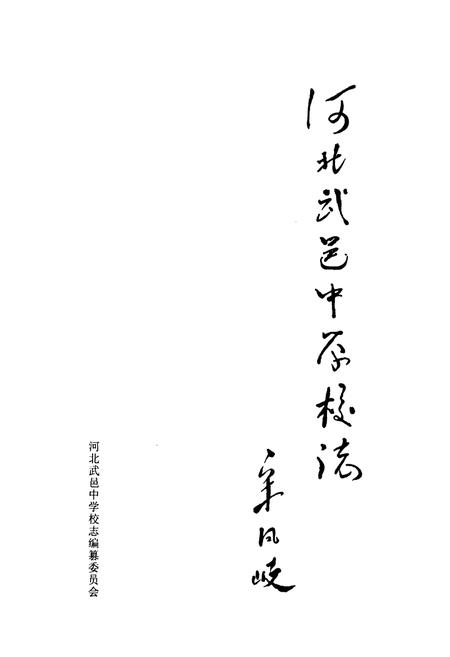 河北武邑中学校志
宋凤岐
河北武邑中学校志编纂委员会